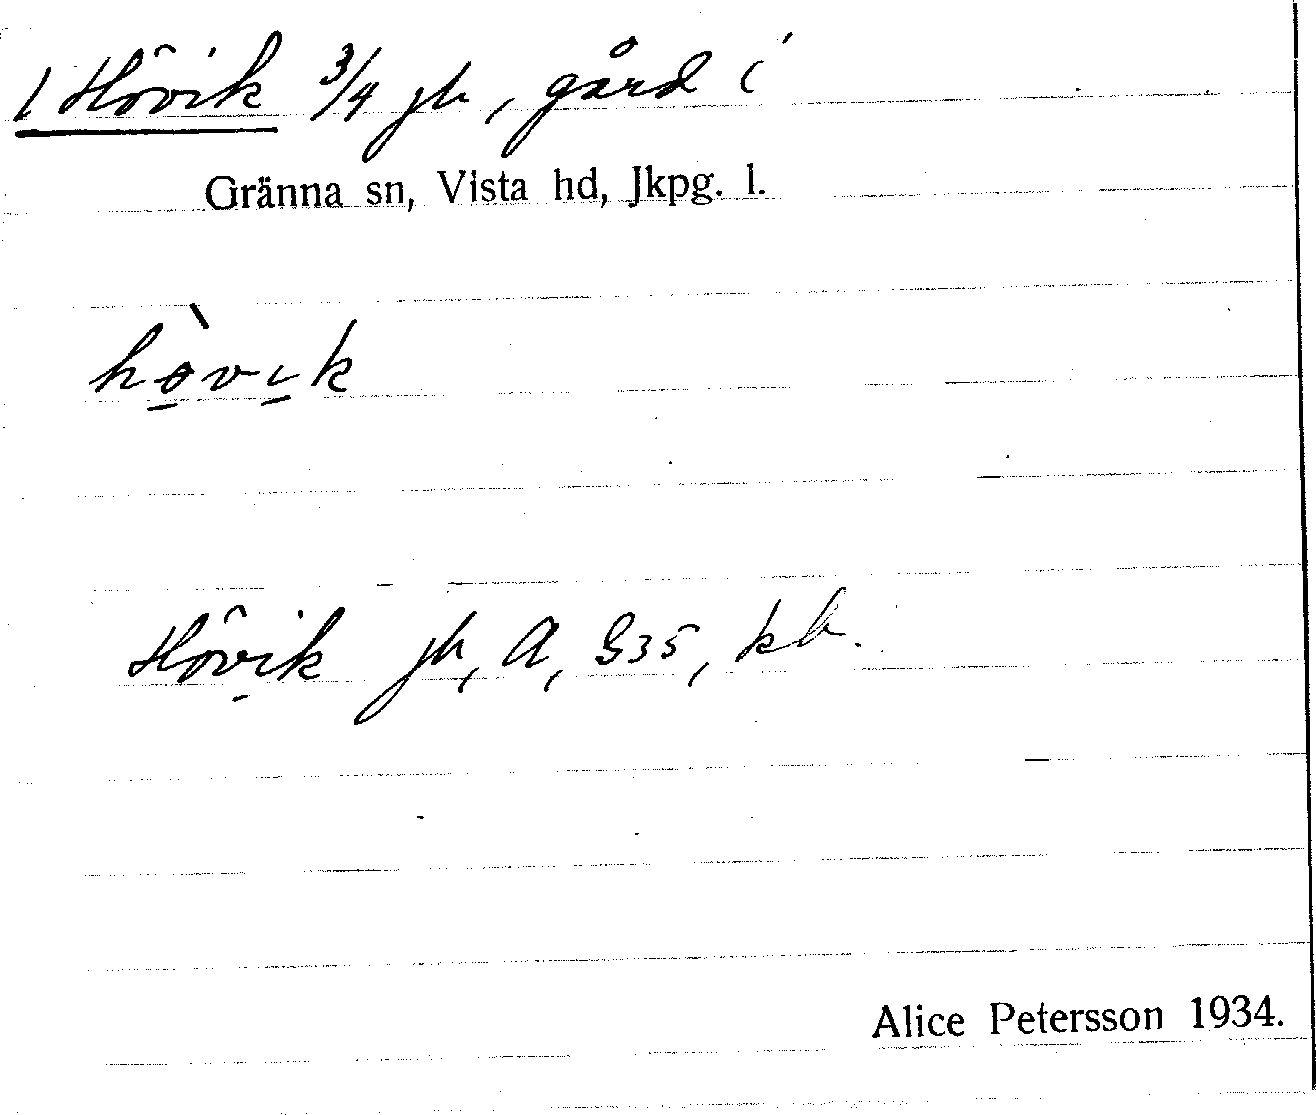 1 Hövik 3/4 jb, gård i
Gränna sn, Vista hd, Jkpg. l.
hø̠̀vi̠k
Hövik jb, A, G35, kb.
Alice Petersson 1934.